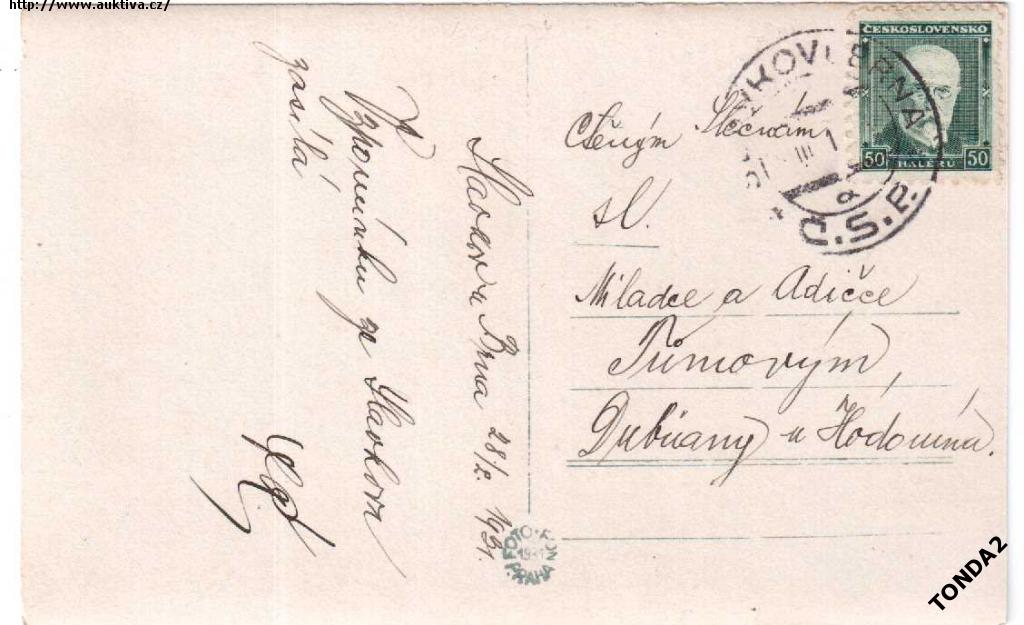 http://www.auktiva.cz/
Slavkov u Brna 28/2. 1931.
Vzpomínku ze Slavkova
zasílá
Ctěným Slečnám
sl.
Miladce a Adičce
Tůmovým,
Dubňany u Hodonína.
ČESKOSLOVENSKO
50 HALÉŘŮ 50
SLAVKOV U BRNA
Č.S.P.
FOTO-FON
1931
PRAHA
TONDA2